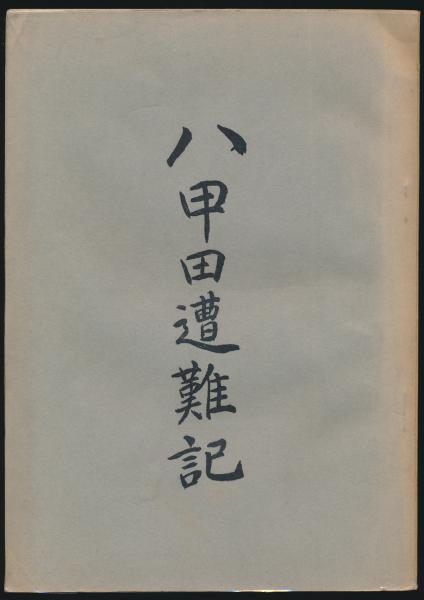 八甲田遭難記